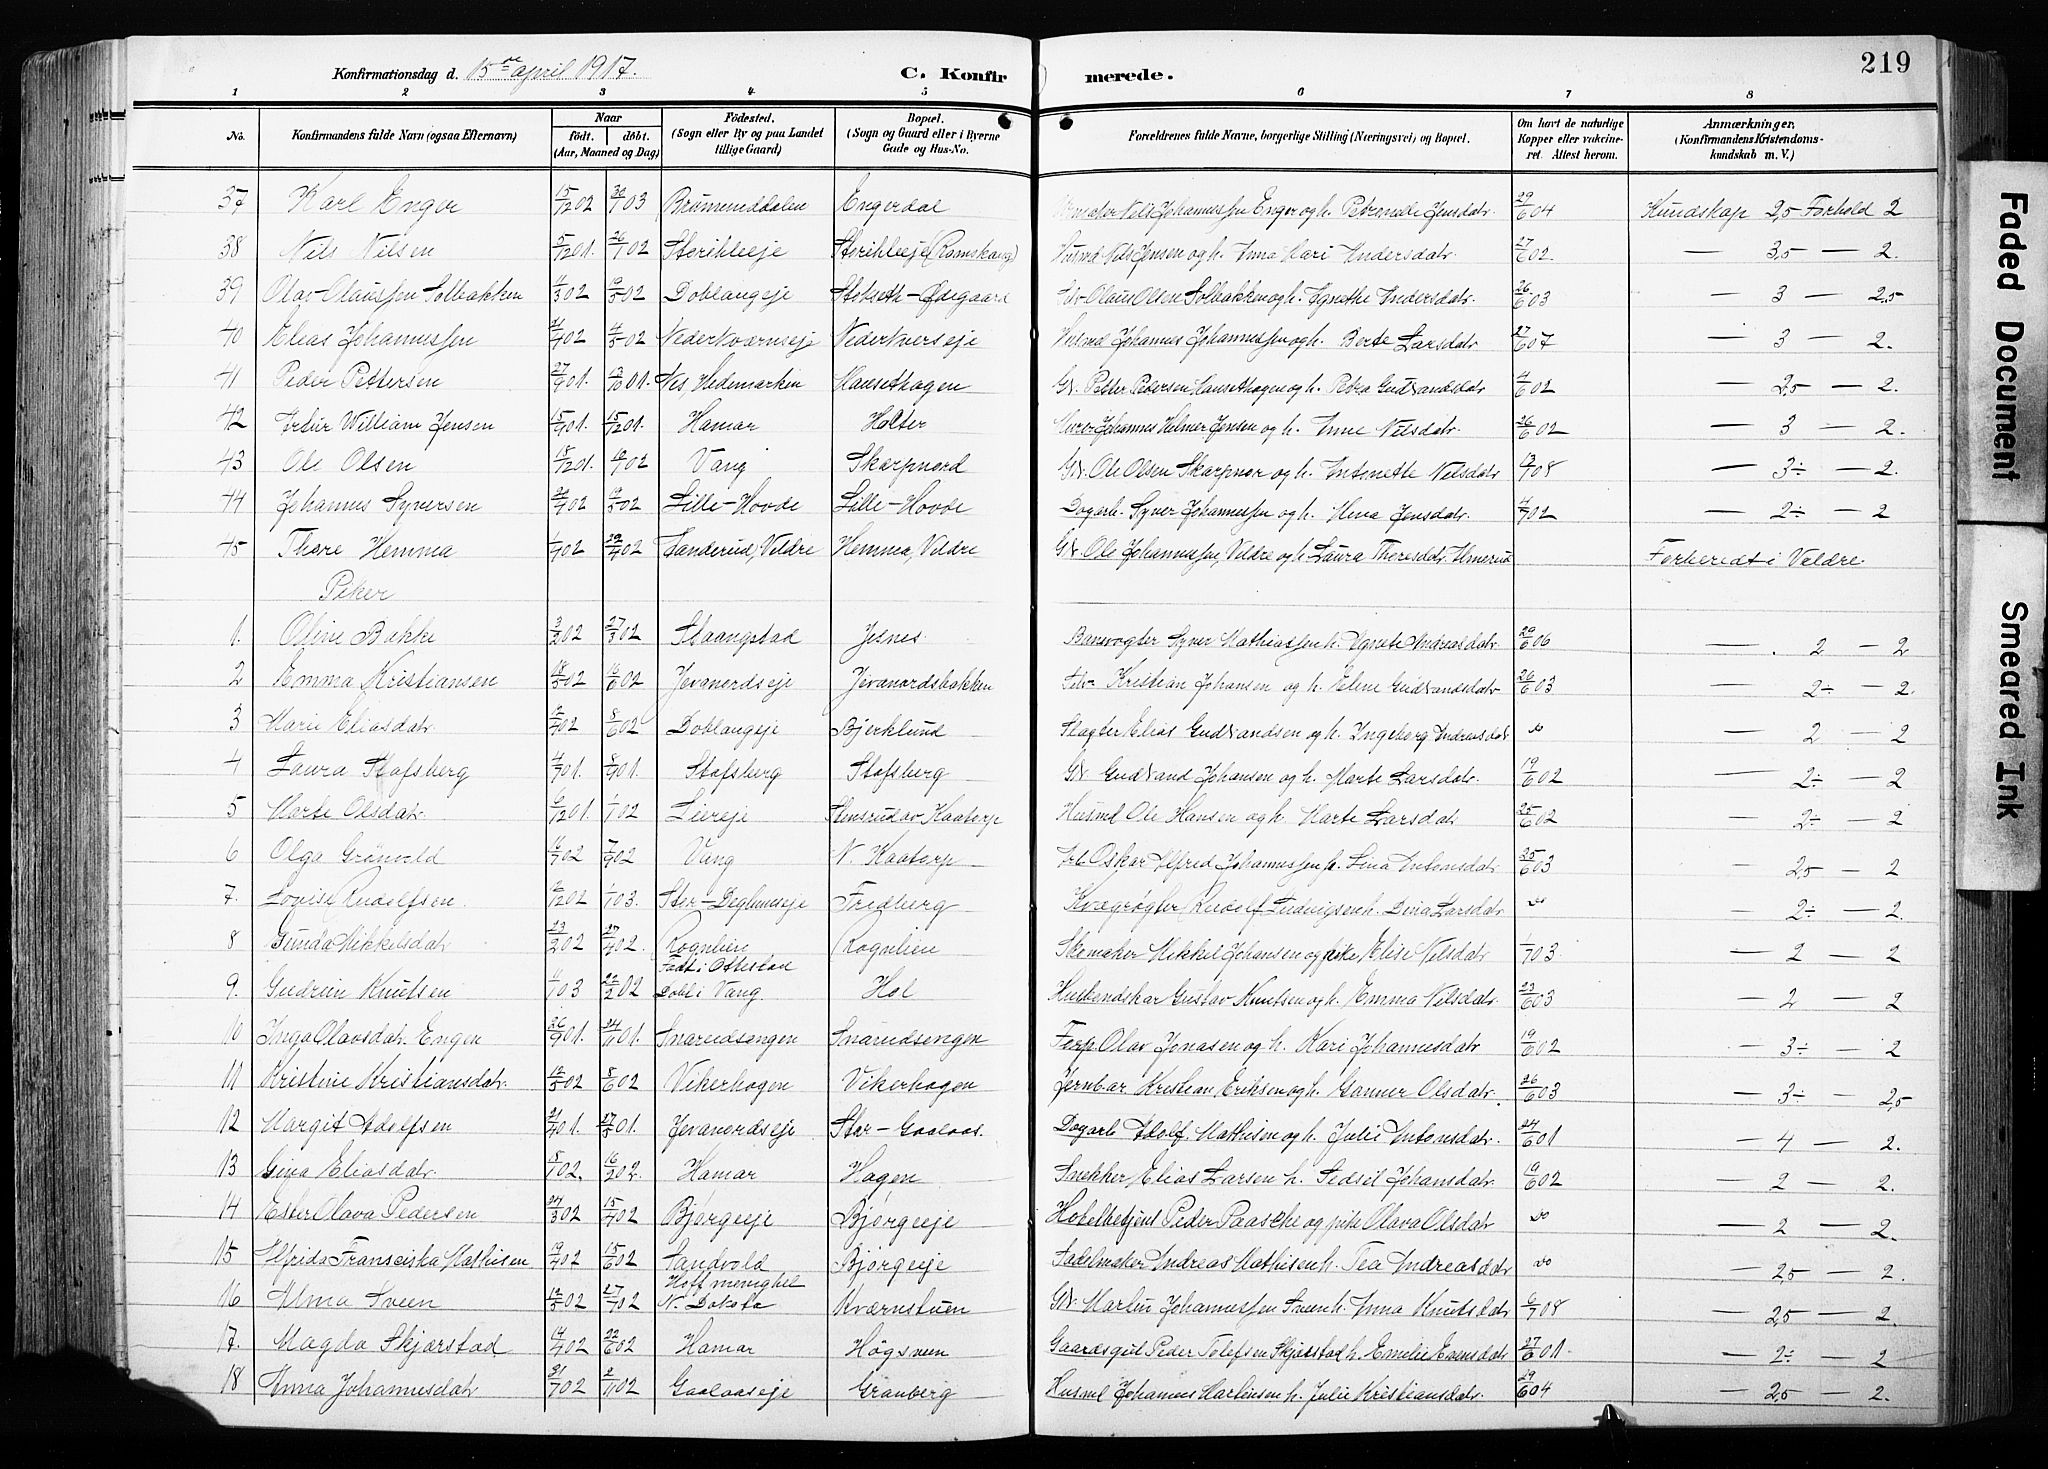 219
Konfirmationsdag d. 15de april 1917.
C. Konfirmerede.
1 2 3 4 5 6 7 8
No.
Konfirmandens fulde Navn (ogsaa Efternavn)
Naar
født. døbt.
(Aar, Maaned og Dag)
Fødested.
(Sogn eller By og paa Landet
tillige Gaard)
Bopæl.
(Sogn og Gaard eller i Byerne
Gade og Hus-No.
Forældrenes fulde Navne, borgerlige Stilling (Næringsvei) og Bopæl.
Om havt de naturlige
Kopper eller vakcine-
ret. Attest herom.
Anmærkninger,
(Konfirmandens Kristendoms-
kundskab m. V.)
37 Karl Enger 15/12 02 30/1 03 Brumunddalen Engerdal Nils Johannessen Enger og h. Petronelle Jensdatr. 29/6 04 Kundskap 2,5 Forhold 2
38 Nils Nilsen 5/12 01. 26/1 02 Storihleeje Storihleeje (Romskaug) Husmd Nils Jensen og h. Anna Kari Andersdatr. 27/6 02. — 3,5 — 2.
39 Olav Olaussen Solbakken 11/3 02 19/5 02 Doblangeje Stokseth-Ødegaard Olaus Olsen Solbakken og h. Agnethe Andersdatr. 26/6 03 — 3 — 2,5
40 Elias Johannessen 21/4 02 4/5 02 Nederkværnseje Nederkverseje Husmd Johannes Johannessen og h. Berte Larsdatr. 27/6 07 — 3 — 2.
41 Peder Pettersen 27/9 01. 3/10 01. Nes, Hedemarken Hansethagen Gbr. Petter Pedersen Hansethagen og h. Petra Gudbrandsdatr 4/6 02 — 2,5 — 2.
42 Artur William Jensen 15/9 01. 15/12 01. Hamar Holter Murer Johannes Helmer Jensen og h. Anne Nilsdatr. 26/6 02 — 3 — 2.
43 Ole Olsen 18/12 01. 19/1 02 Vang Skarpnord Gbr. Ole Olsen Skarpnor og h. Antonette Nilsdatr 13/7 08 — 3÷ — 2.
44 Johannes Syversen 21/4 02 19/5 02 Lille-Hovde Lille-Hovde Dagarb. Syver Johannessen og h. Mina Jensdatr. 4/7 02 — 2÷ — 2
45 Thore Hemma 1/4 02 29/4 02 Sanderud, Veldre Hemma, Veldre Gbr. Ole Johannessen, Veldre og h. Laura Thoresdatr. Forberedt i Veldre.
Piker
1. Oline Bakke 3/2 02 27/3 02 Staangstad Jesnes. Banevogter Syver Mathiassen h. Agnete Andreasdatr. 29/6 06 — 2 — 2
2 Emma Kristiansen 18/5 02 16/6 02 Jevanordseje Jevanordsbakken Kristian Johansen og h. Helene Gudbrandsdatr 26/6 03 — 2÷ — 2.
3 Marie Eliasdatr. 12/4 02 8/6 02 Doblangeje Bjerklund Slagter Elias Gudbrandsen og h. Ingeborg Andreasdatr do 2 — 2
4 Laura Stafsberg 4/7 01. 8/9 01. Stafsberg Stafsberg Gbr. Gudbrand Johansen og h. Marte Larsdatr. 19/6 02 — 2÷ — 2
5 Marte Olsdatr. 6/12 01. 1/1 02 Liereje Stensrud av Kaatorp Husmd Ole Hansen og h. Marte Larsdatr 25/6 02 — 2÷ — 2
6 Olga Grönvold 11/7 02 7/9 02 Vang N. Kaatorp Arb. Oskar Alfred Johannessen h. Lina Antonsdatr 25/6 03 — 2,5 — 2
7. Lovise Rudolfsen. 12/12 02 1/1 03. Stor-Deglumseje Fredberg Kvægrøgter Rudolf Ludvigsen h. Dina Larsdatr do — 2÷ — 2.
8 Gunda Mikkelsdatr 23/2 02 27/4 02. Rognlien Rognlien Skomaker Mikkel Johansen og pike Elise Nilsdatr 1/7 03. — 2 — 2
9. Gudrun Knutsen 11/1 03 22/2 02 Født i Ottestad
Døbt i Vang. Hol Gustav Knutsen og h. Emma Nilsdatr. 23/6 03 — 2 — 2
10 Inga Olavsdatr. Engen 26/9 01. 24/11 01. Snarudsengen Snarudsengen Forp. Olav Jonasen og h. Kari Johannesdatr 19/6 02 — 3÷ — 2
11 Kristine Kristiansdatr. 12/5 02 8/6 02 Vikerhagen Vikerhagen Jernbar. Kristian Eriksen og h. Gunner Olsdatr. 26/6 03 — 3÷ — 2,5
12 Margit Adolfsen 21/4 01. 27/5 01. Jevanordseje Stor-Gaalaas. Dagarb. Adolf Mathisen og h. Julie Antonsdatr. 24/6 01 — 4 — 2.
13 Gina Eliasdatr. 18/1 02. 16/2 02. Hamar Hagen Snekker Elias Larsen h. Sedsil Johansdatr. 19/6 02 — 2 — 2.
14 Ester Olava Pedersen 24/3 02 15/4 02 Bjørgeeje Bjørgeeje Hotelbetjent Peder Paasche og pike Olava Olsdatr do — 2 — 2.
15 Alfrida Franciska Mathisen 19/4 02 15/6 02 Sandvold Bjørgeeje Sadelmaker Andreas Mathisen h. Tea Andreasdatr do — 2,5 — 2.
16 Alma Sveen 12/5 02 27/7 02 Hoff menighet
N. Dakota Kværnstuen Gbr. Martin Johannessen Sveen h. Anna Knutsdatr 6/7 08 — 2,5 — 2.
17. Magda Skjærstad 14/4 02 22/6 02 Hamar Högsveen Gaardsgut Peder Tolefsen Skjærstad h. Emelie Evensdatr 27/6 01. — 2÷ — 2
18 Anna Johannesdatr 31/7 02 2/11 02 Gaalaaseje Granberg Husmd Johannes Martinsen h. Julie Kristiansdatr. 29/6 04 — 2,5 — 2.
Faded Document
Smeared Ink